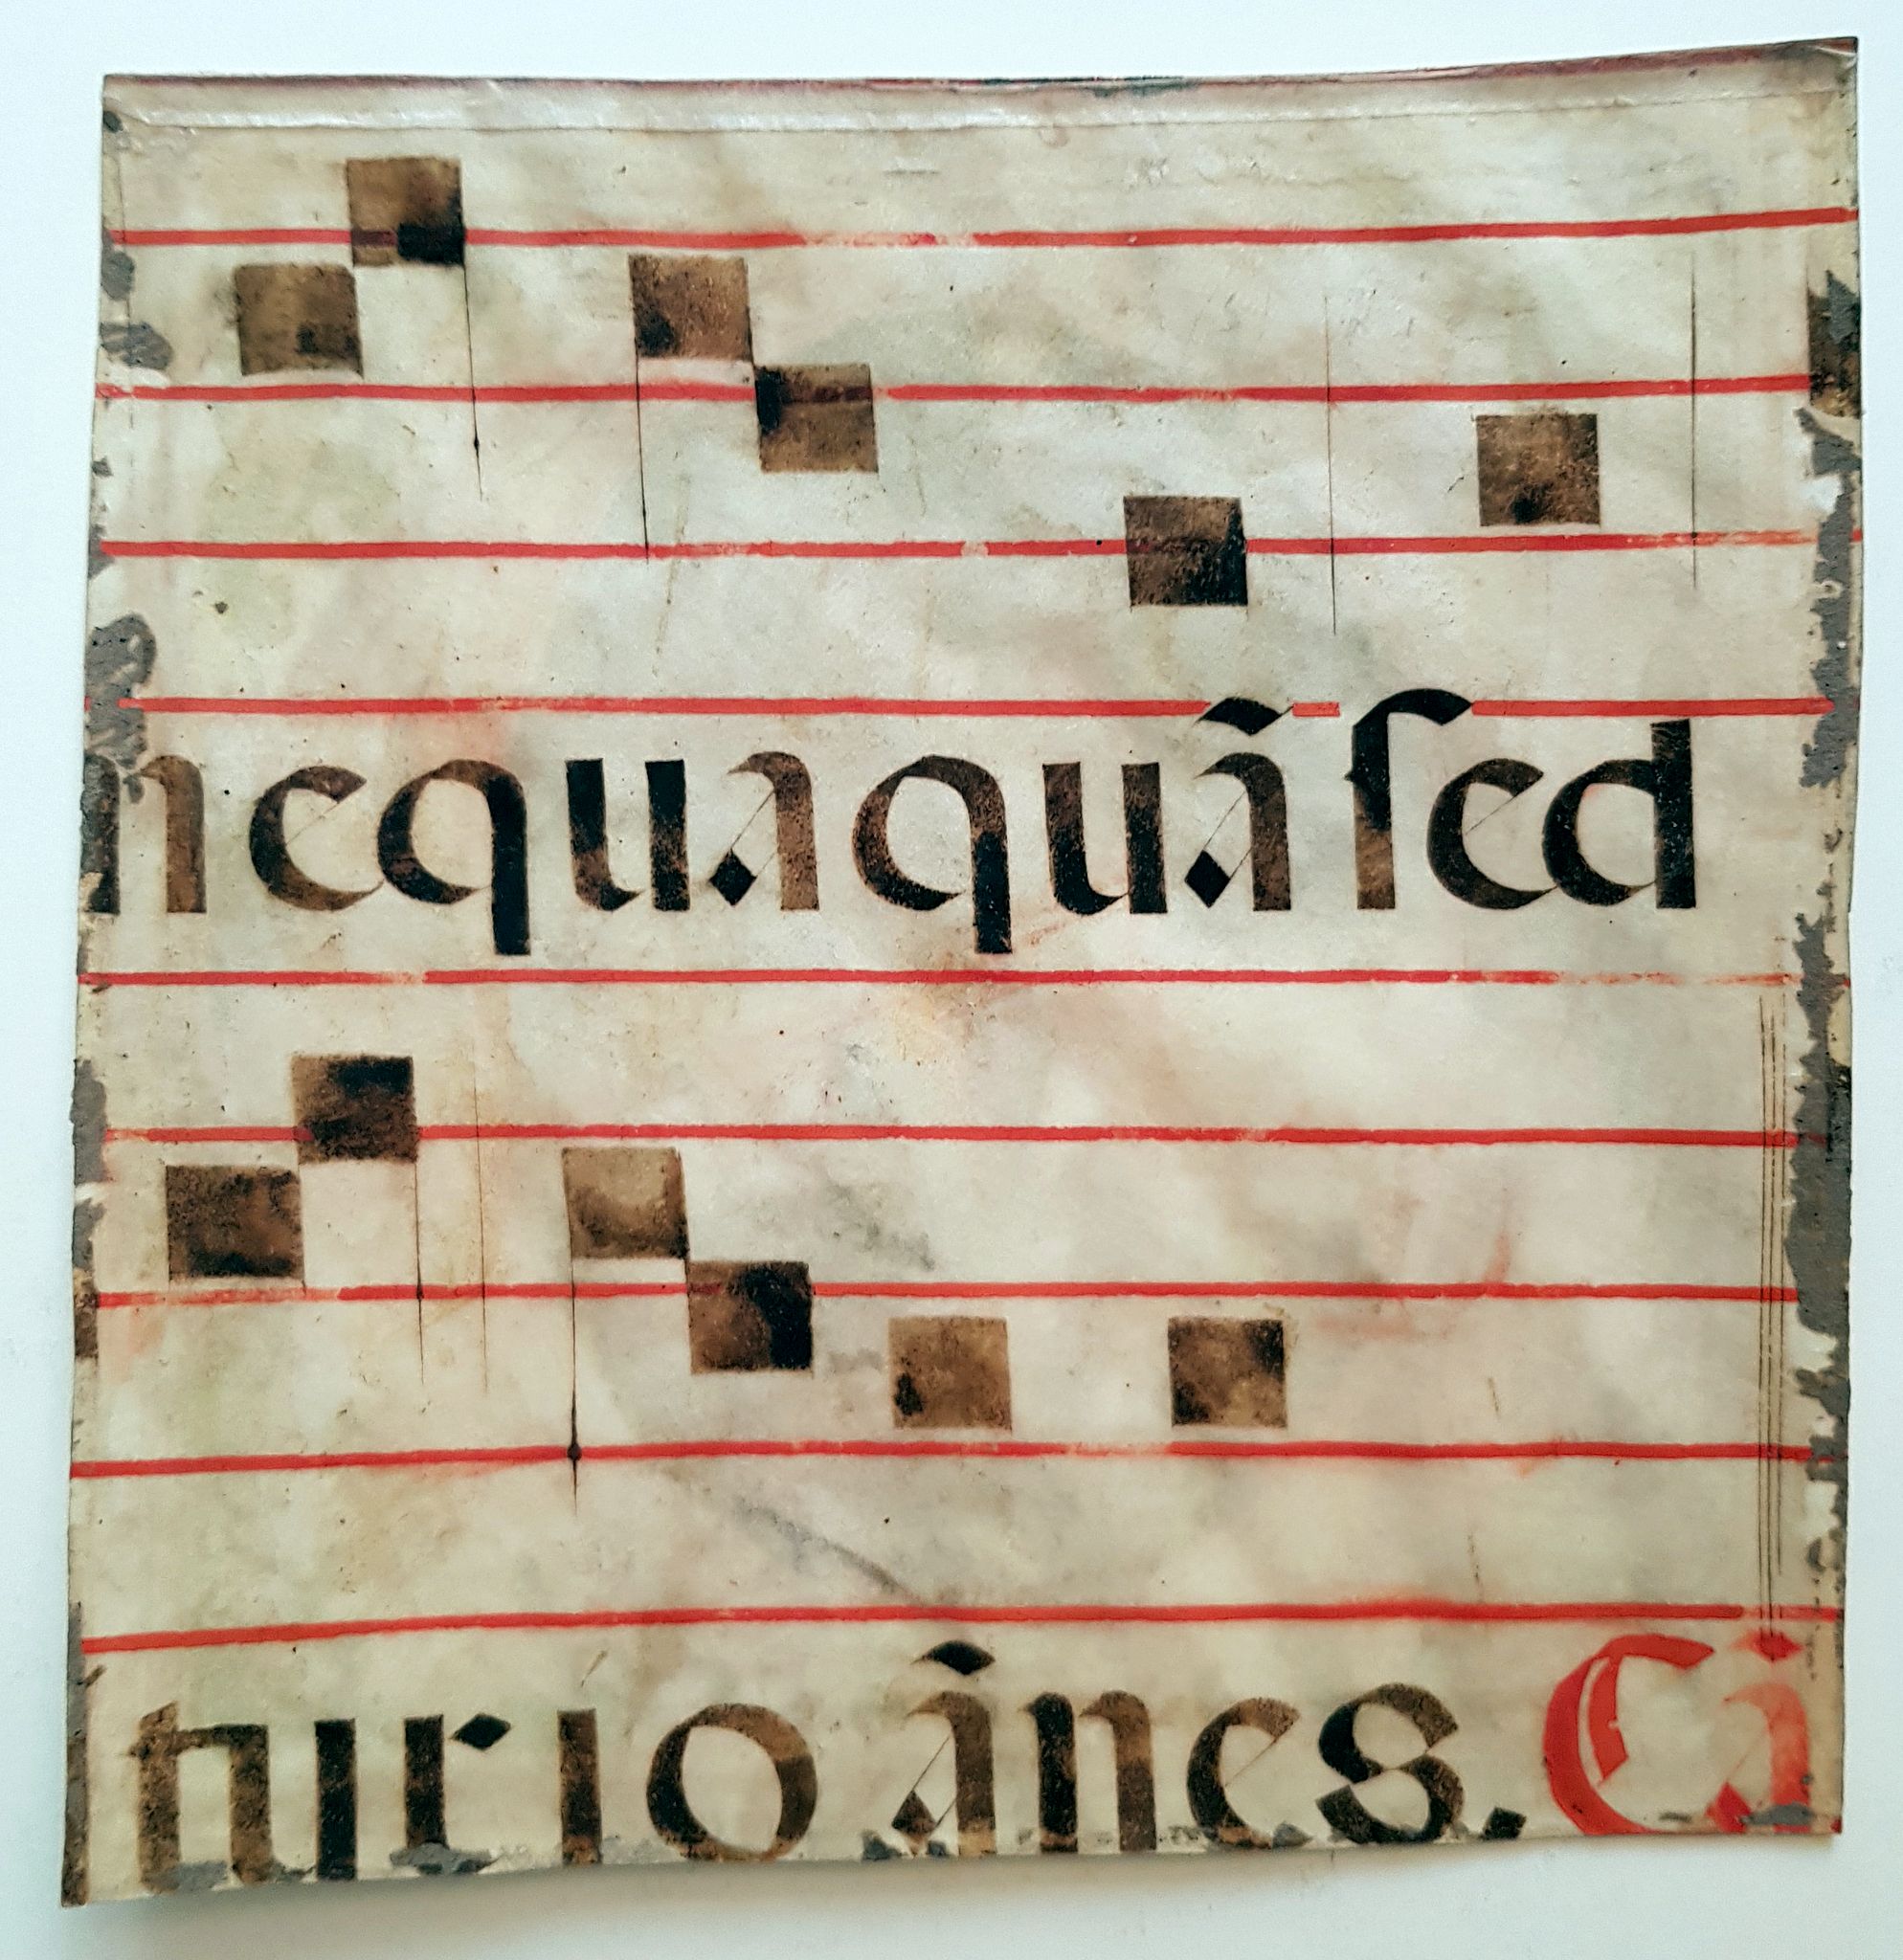 nequaquã ſed
tur ioãnes. Cã